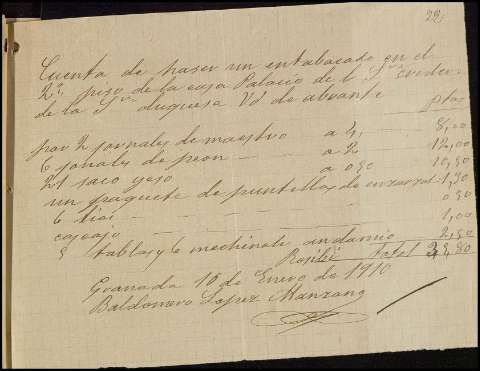 22
Cuenta de haser un entabacado en el
2º piso de la casa Palacio de
de la Sra duquesa Vd de abrante
ptas
por 2 jornales de maestro a 4, 8,00
6 jonales de peon — a 2 12,00
21 saco yeso a 0 50 10,50
un paquete de puntillas de enzarzal - 1,30
6 0 50
cascajo 1,00
3 tablas y 6 mechinale andamio 2,50
Resibi total 38,80
Granada 15 de Enero de 1910
Baldomero Lopez Manzano